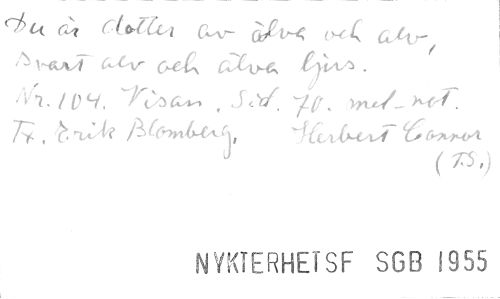 Du är dotter av älva och alv,
svart alv och älva ljus.
Nr. 104. Visan. Sid. 70. mel-not.
Tx. Erik Blomberg. Herbert Connor
(T.S.)
NYKTERHETSF SGB 1955